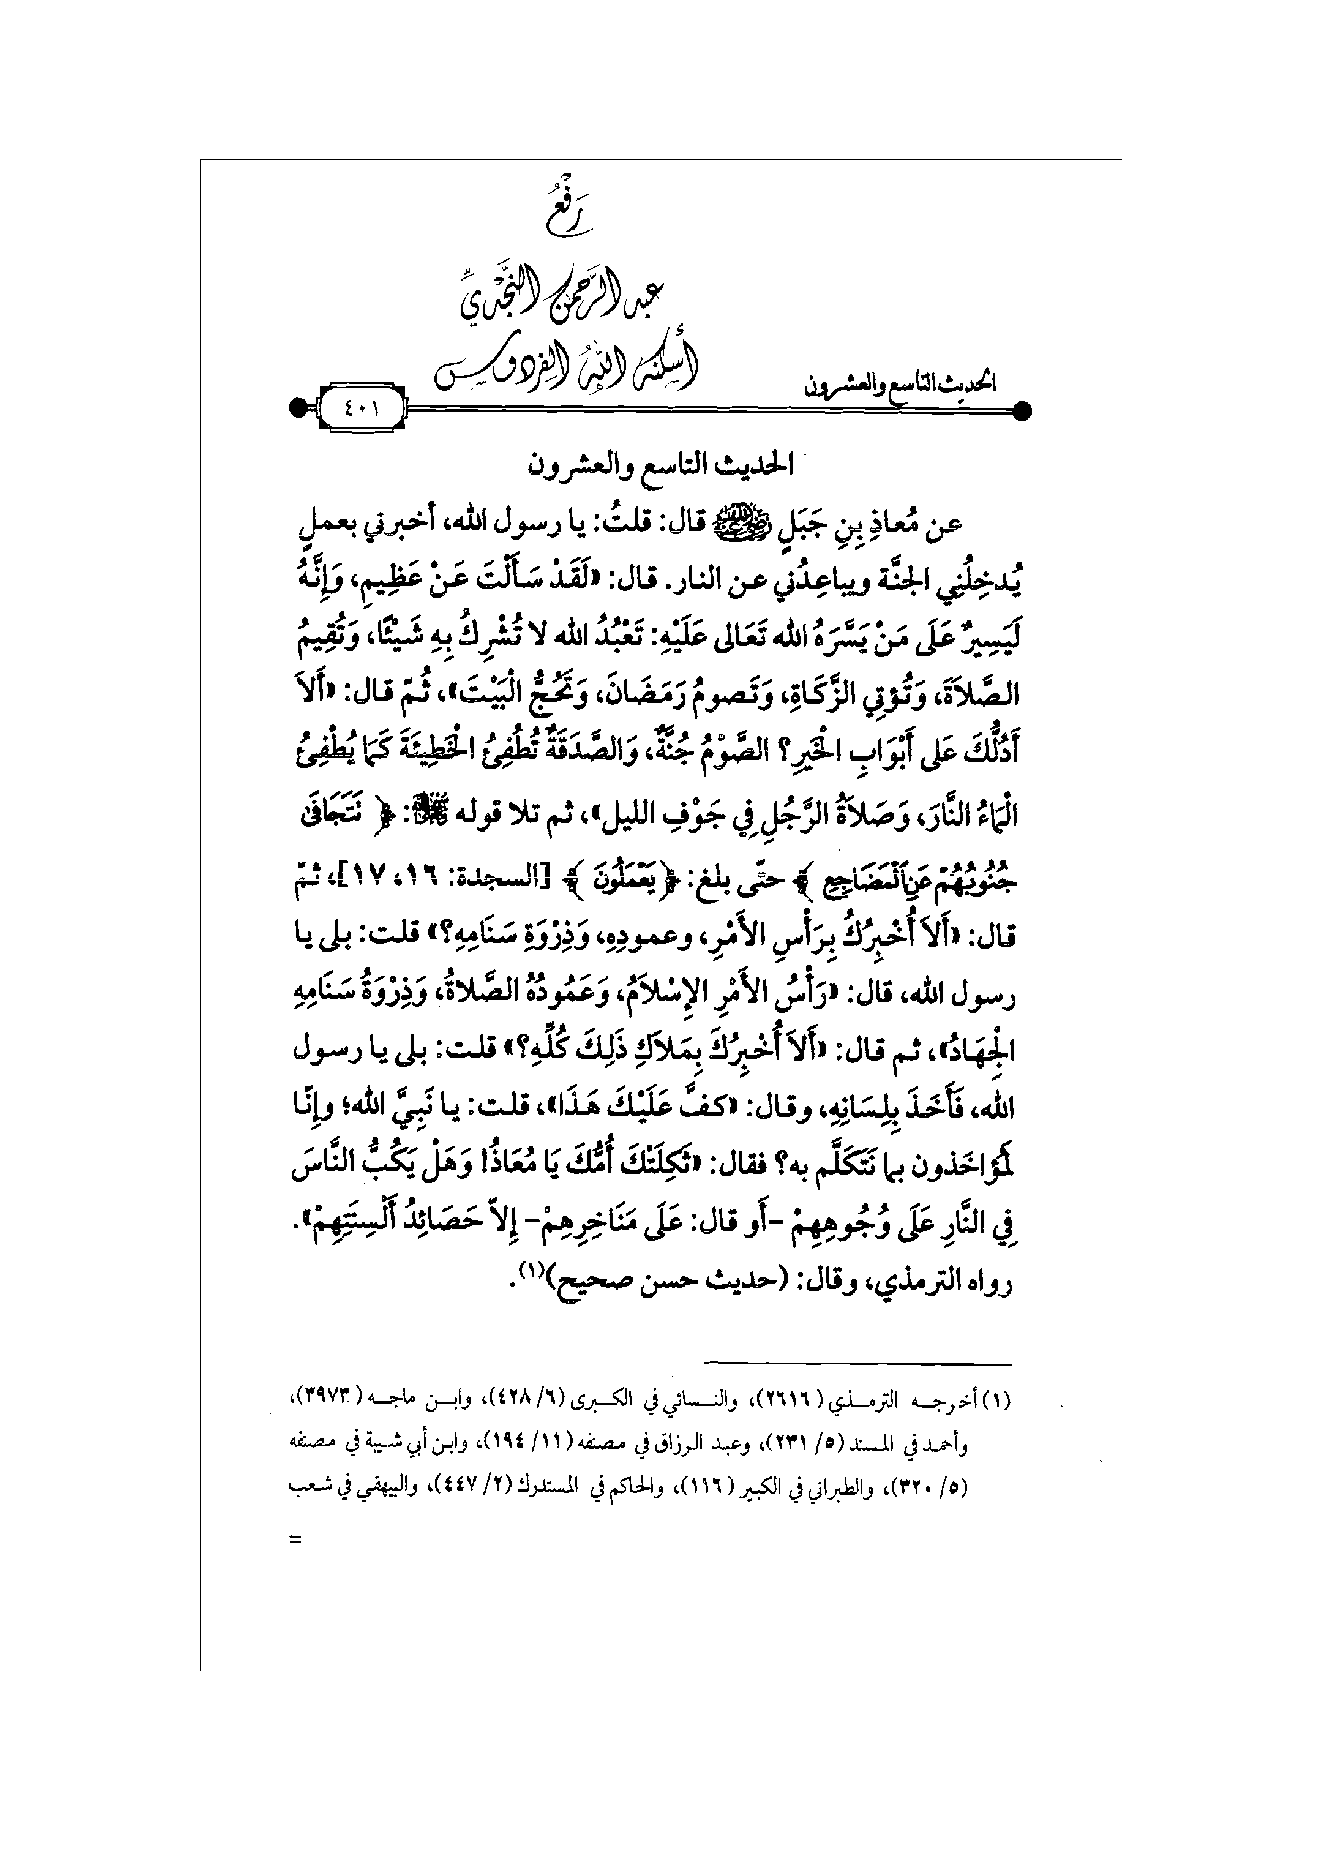 رَفْعُ
عبد الرَّحمن النَّجْديِّ
أسكنه اللهُ الفردوس
الحديث التاسع والعشرون
٤٠١
الحديث التاسع والعشرون
عن مُعاذِ بنِ جَبَلٍ رضي الله عنه قال: قلتُ: يا رسول الله، أخبرني بعملٍ
يُدخِلُنِي الجنَّة ويباعِدُني عن النار. قال: «لَقَدْ سَأَلْتَ عَنْ عَظِيمِ، وَإِنَّهُ
لَيَسِيرٌ عَلَى مَنْ يَسَّرَهُ الله تَعَالى عَلَيْهِ: تَعْبُدُ الله لا تُشْرِكُ بِهِ شَيْئًا، وَتُقِيمُ
الصَّلاَةَ، وَتُؤتِي الزَّكَاةِ، وَتَصومُ رَمَضَانَ، وَتَحُجُّ الْبَيْتَ»، ثُمّ قال: «أَلاَ
أَدُلُّكَ عَلى أَبْوَابِ الخَيرِ؟ الصَّوْمُ جُنَّةٌ، وَالصَّدَقَةُ تُطْفِئُ الخَطِيئَةَ كَمَا يُطْفِئُ
الْمَاءُ النَّارَ، وَصَلاَةُ الرَّجُلِ فِي جَوْفِ الليل»، ثم تلا قوله ﷻ: ﴿ نَتَجَافَىٰ
جُنُوبُهُمْ عَنِ الْمَضَاجِعِ ﴾ حتّى بلغ: ﴿ يَعْمَلُونَ ﴾ [السجدة: ١٦، ١٧]، ثمّ
قال: «أَلاَ أُخْبِرُكُ بِرَأْسِ الأَمْرِ، وعمودِهِ، وَذِرْوَةِ سَنَامِهِ؟» قلت: بلى يا
رسول الله، قال: «رَأْسُ الأَمْرِ الإِسْلاَمُ، وَعَمُودُهُ الصَّلاةُ، وَذِرْوَةُ سَنَامِهِ
الجِهَادُ»، ثم قال: «أَلاَ أُخْبِرُكَ بِمَلاَكِ ذَلِكَ كُلِّهِ؟» قلت: بلى يا رسول
الله، فَأَخَذَ بِلِسَانِهِ، وقال: «كفَّ عَلَيْكَ هَذَا»، قلت: يا نَبِيَّ الله؛ وإنّا
لمُؤاخَذون بما نَتَكَلَّم به؟ فقال: «ثَكِلَتْكَ أُمُّكَ يَا مُعَاذُ! وَهَلْ يَكُبُّ النَّاسَ
فِي النَّارِ عَلَى وُجُوهِهِمْ -أَو قال: عَلَى مَنَاخِرِهِمْ- إِلاّ حَصَائِدُ أَلْسِنَتِهِمْ».
رواه الترمذي، وقال: (حديث حسن صحيح)(١).
(١) أخرجه الترمذي (٢٦١٦)، والنسائي في الكبرى (٦/ ٤٢٨)، وابن ماجه (٣٩٧٣)،
وأحمد في المسند (٥/ ٢٣١)، وعبد الرزاق في مصنفه (١١/ ١٩٤)، وابن أبي شيبة في مصنفه
(٥/ ٣٢٠)، والطبراني في الكبير (١١٦)، والحاكم في المستدرك (٢/ ٤٤٧)، والبيهقي في شعب
=